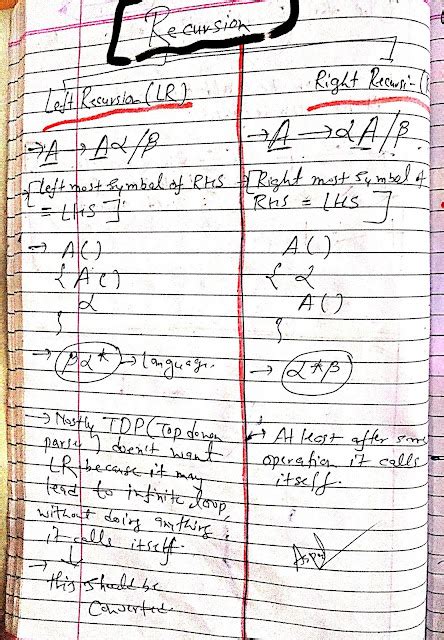 Recursion
Left Recursion (LR)
→ A → Aα/β
→ [left most symbol of RHS
= LHS]
→ A()
{ A()
α
}
→ βα* → language.
→ Mostly TDP (Top down
parser) doesn't want
LR because it may
lead to infinite loop,
without doing anything
it calls itself.
→ this should be
converted.
Right Recursi-
→ A → αA/β
→ [Right most symbol of
RHS = LHS]
A()
{ α
A()
}
→ α*β
→ At least after some
operation it calls
itself.